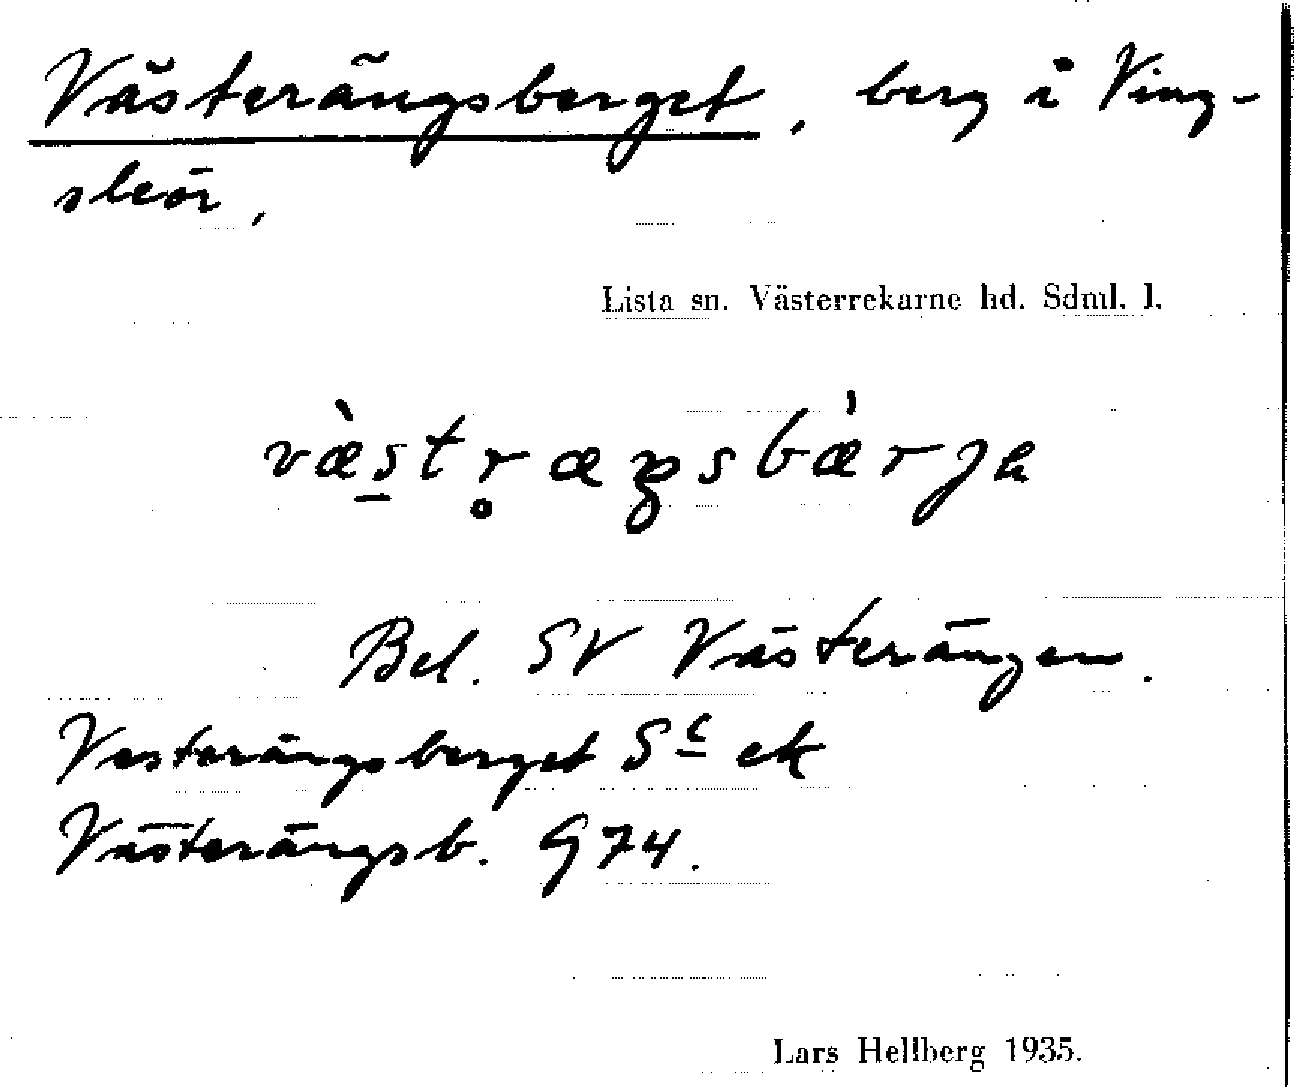 Västerängsberget, berg i Ving-
sleör,
Lista sn. Västerrekarne hd. Sdml. l.
Bel. SV Västerängen.
Vesterängsberget Sc ek
Västerängsb. G74.
Lars Hellberg 1935.